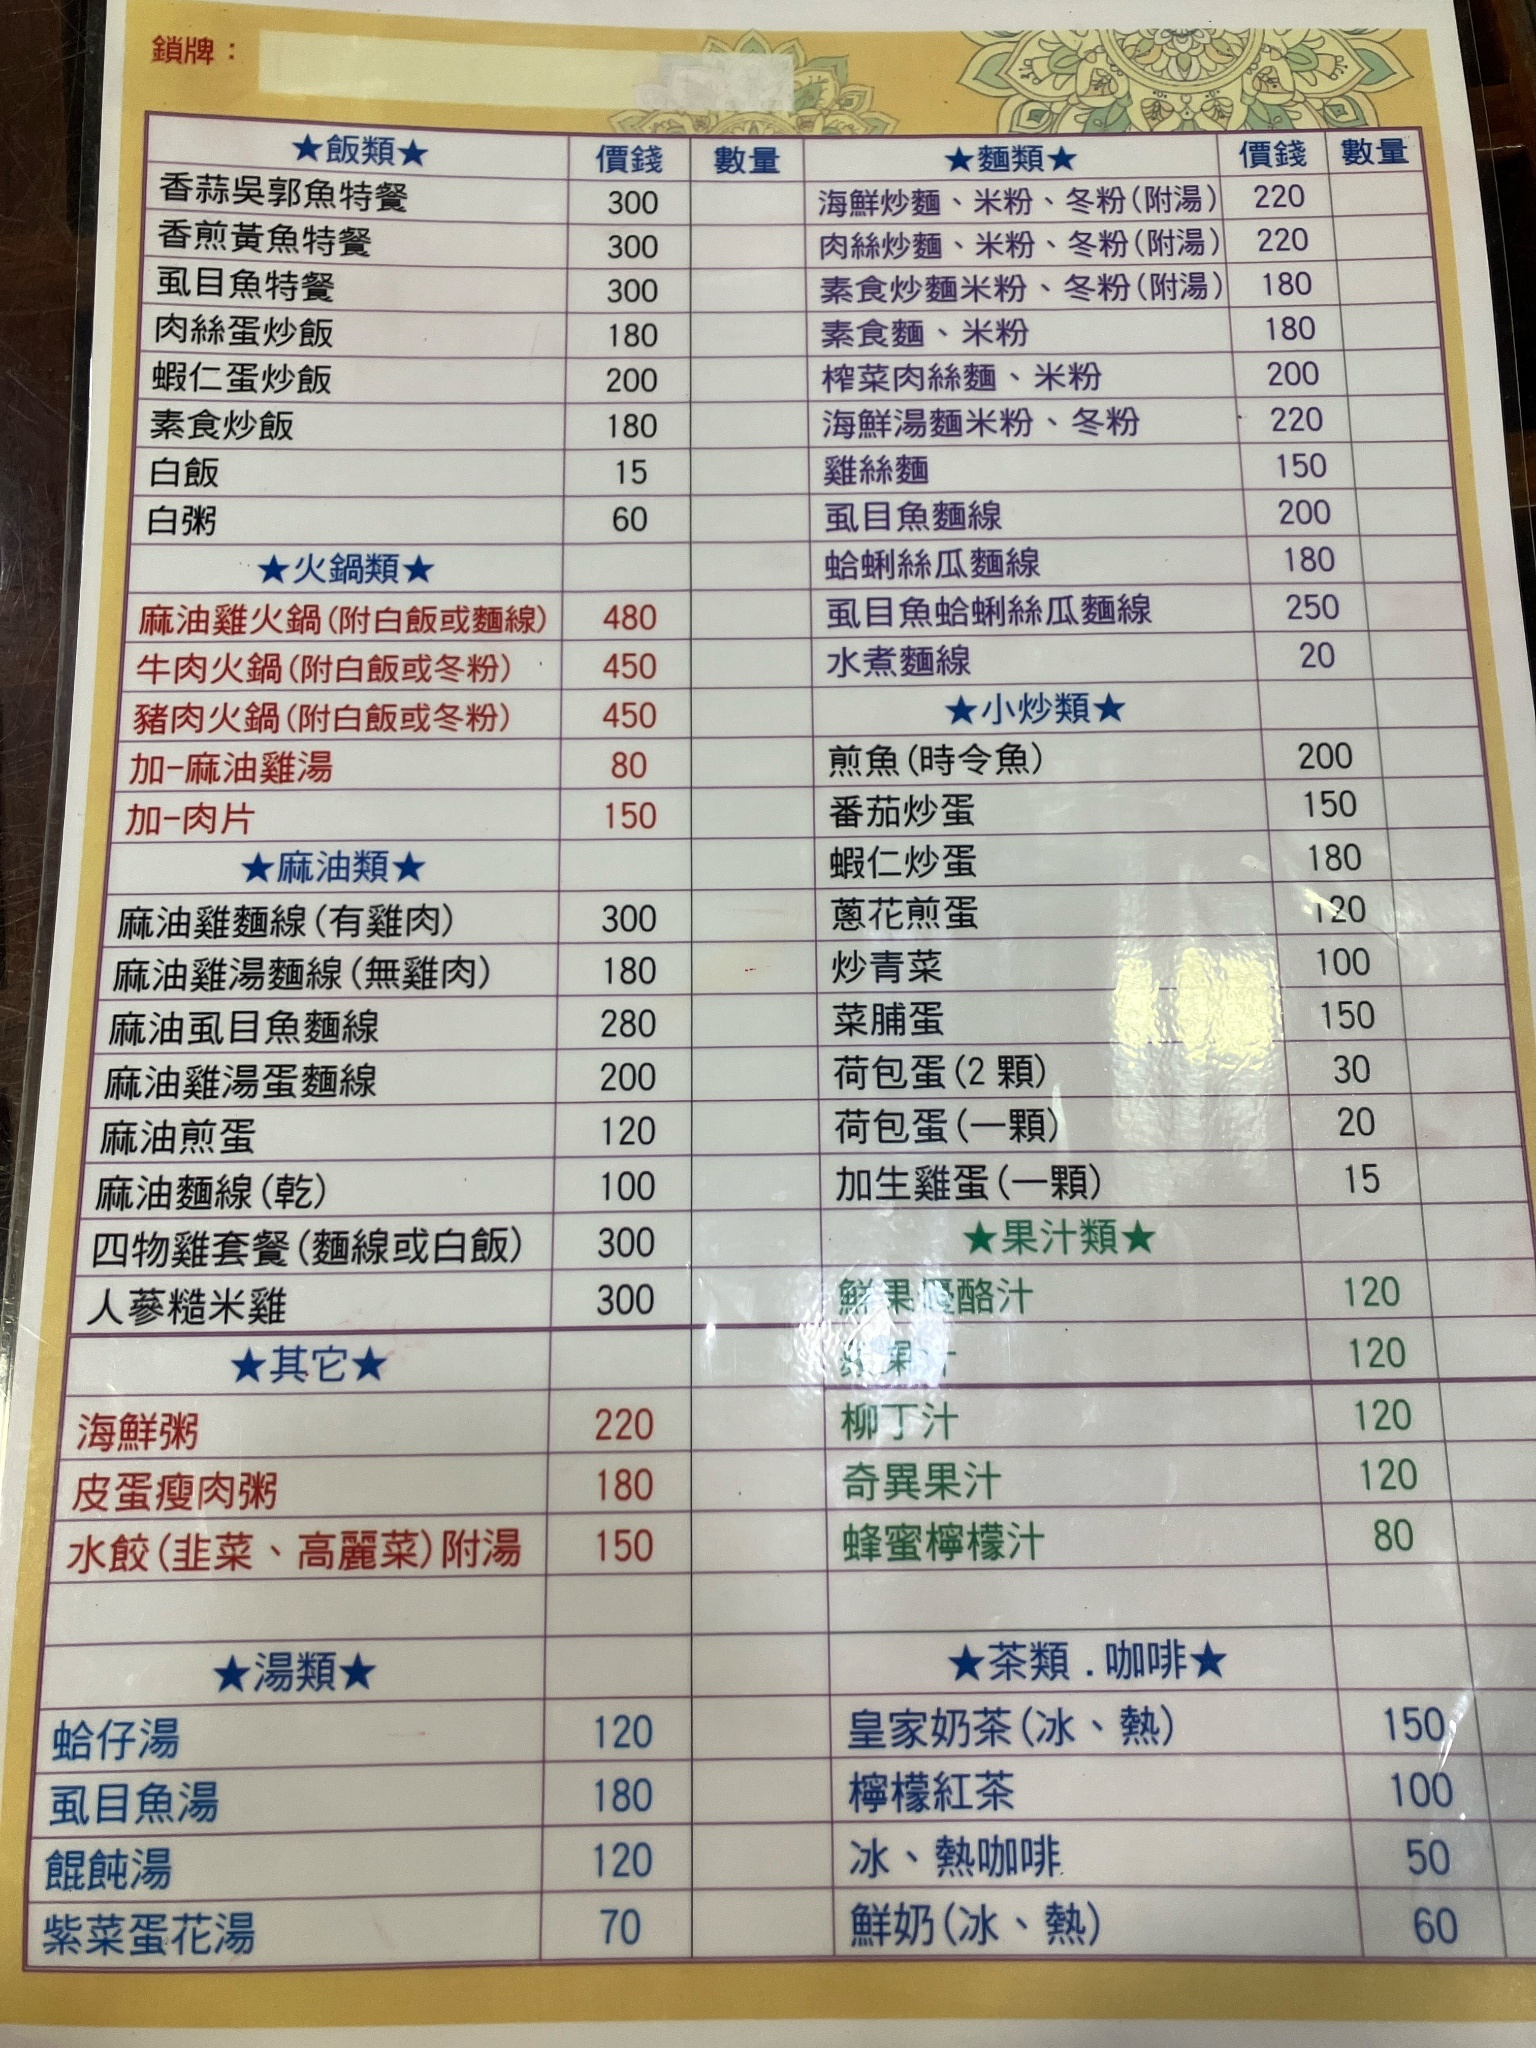 鎖牌：
★飯類★ 價錢 數量
香蒜吳郭魚特餐 300
香煎黃魚特餐 300
虱目魚特餐 300
肉絲蛋炒飯 180
蝦仁蛋炒飯 200
素食炒飯 180
白飯 15
白粥 60
★火鍋類★
麻油雞火鍋(附白飯或麵線) 480
牛肉火鍋(附白飯或冬粉) 450
豬肉火鍋(附白飯或冬粉) 450
加-麻油雞湯 80
加-肉片 150
★麻油類★
麻油雞麵線(有雞肉) 300
麻油雞湯麵線(無雞肉) 180
麻油虱目魚麵線 280
麻油雞湯蛋麵線 200
麻油煎蛋 120
麻油麵線(乾) 100
四物雞套餐(麵線或白飯) 300
人蔘糙米雞 300
★其它★
海鮮粥 220
皮蛋瘦肉粥 180
水餃(韭菜、高麗菜)附湯 150
★湯類★
蛤仔湯 120
虱目魚湯 180
餛飩湯 120
紫菜蛋花湯 70
★麵類★ 價錢 數量
海鮮炒麵、米粉、冬粉(附湯) 220
肉絲炒麵、米粉、冬粉(附湯) 220
素食炒麵米粉、冬粉(附湯) 180
素食麵、米粉 180
榨菜肉絲麵、米粉 200
海鮮湯麵米粉、冬粉 220
雞絲麵 150
虱目魚麵線 200
蛤蜊絲瓜麵線 180
虱目魚蛤蜊絲瓜麵線 250
水煮麵線 20
★小炒類★
煎魚(時令魚) 200
番茄炒蛋 150
蝦仁炒蛋 180
蔥花煎蛋 120
炒青菜 100
菜脯蛋 150
荷包蛋(2 顆) 30
荷包蛋(一顆) 20
加生雞蛋(一顆) 15
★果汁類★
鮮果優酪汁 120
果汁 120
柳丁汁 120
奇異果汁 120
蜂蜜檸檬汁 80
★茶類.咖啡★
皇家奶茶(冰、熱) 150
檸檬紅茶 100
冰、熱咖啡 50
鮮奶(冰、熱) 60